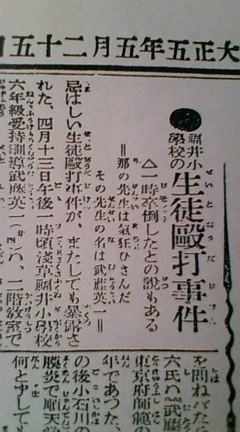 大正五年五月二十五日
福井小學校の
生徒毆打事件
△一時卒倒したとの說もある
=那の先生は氣狂ひさんだ
その先生の名は武藤英一=
忌はしい生徒毆打事件が、またしても暴露さ
れた、四月十三日午後一時頃淺草福井小學校
六年級受持訓導武藤英一(二八)は、二階敎室で
を問ねがた
六氏は「武藤
東京府師範
年であつた、
の後小石川の
膜炎で順天堂
何としても